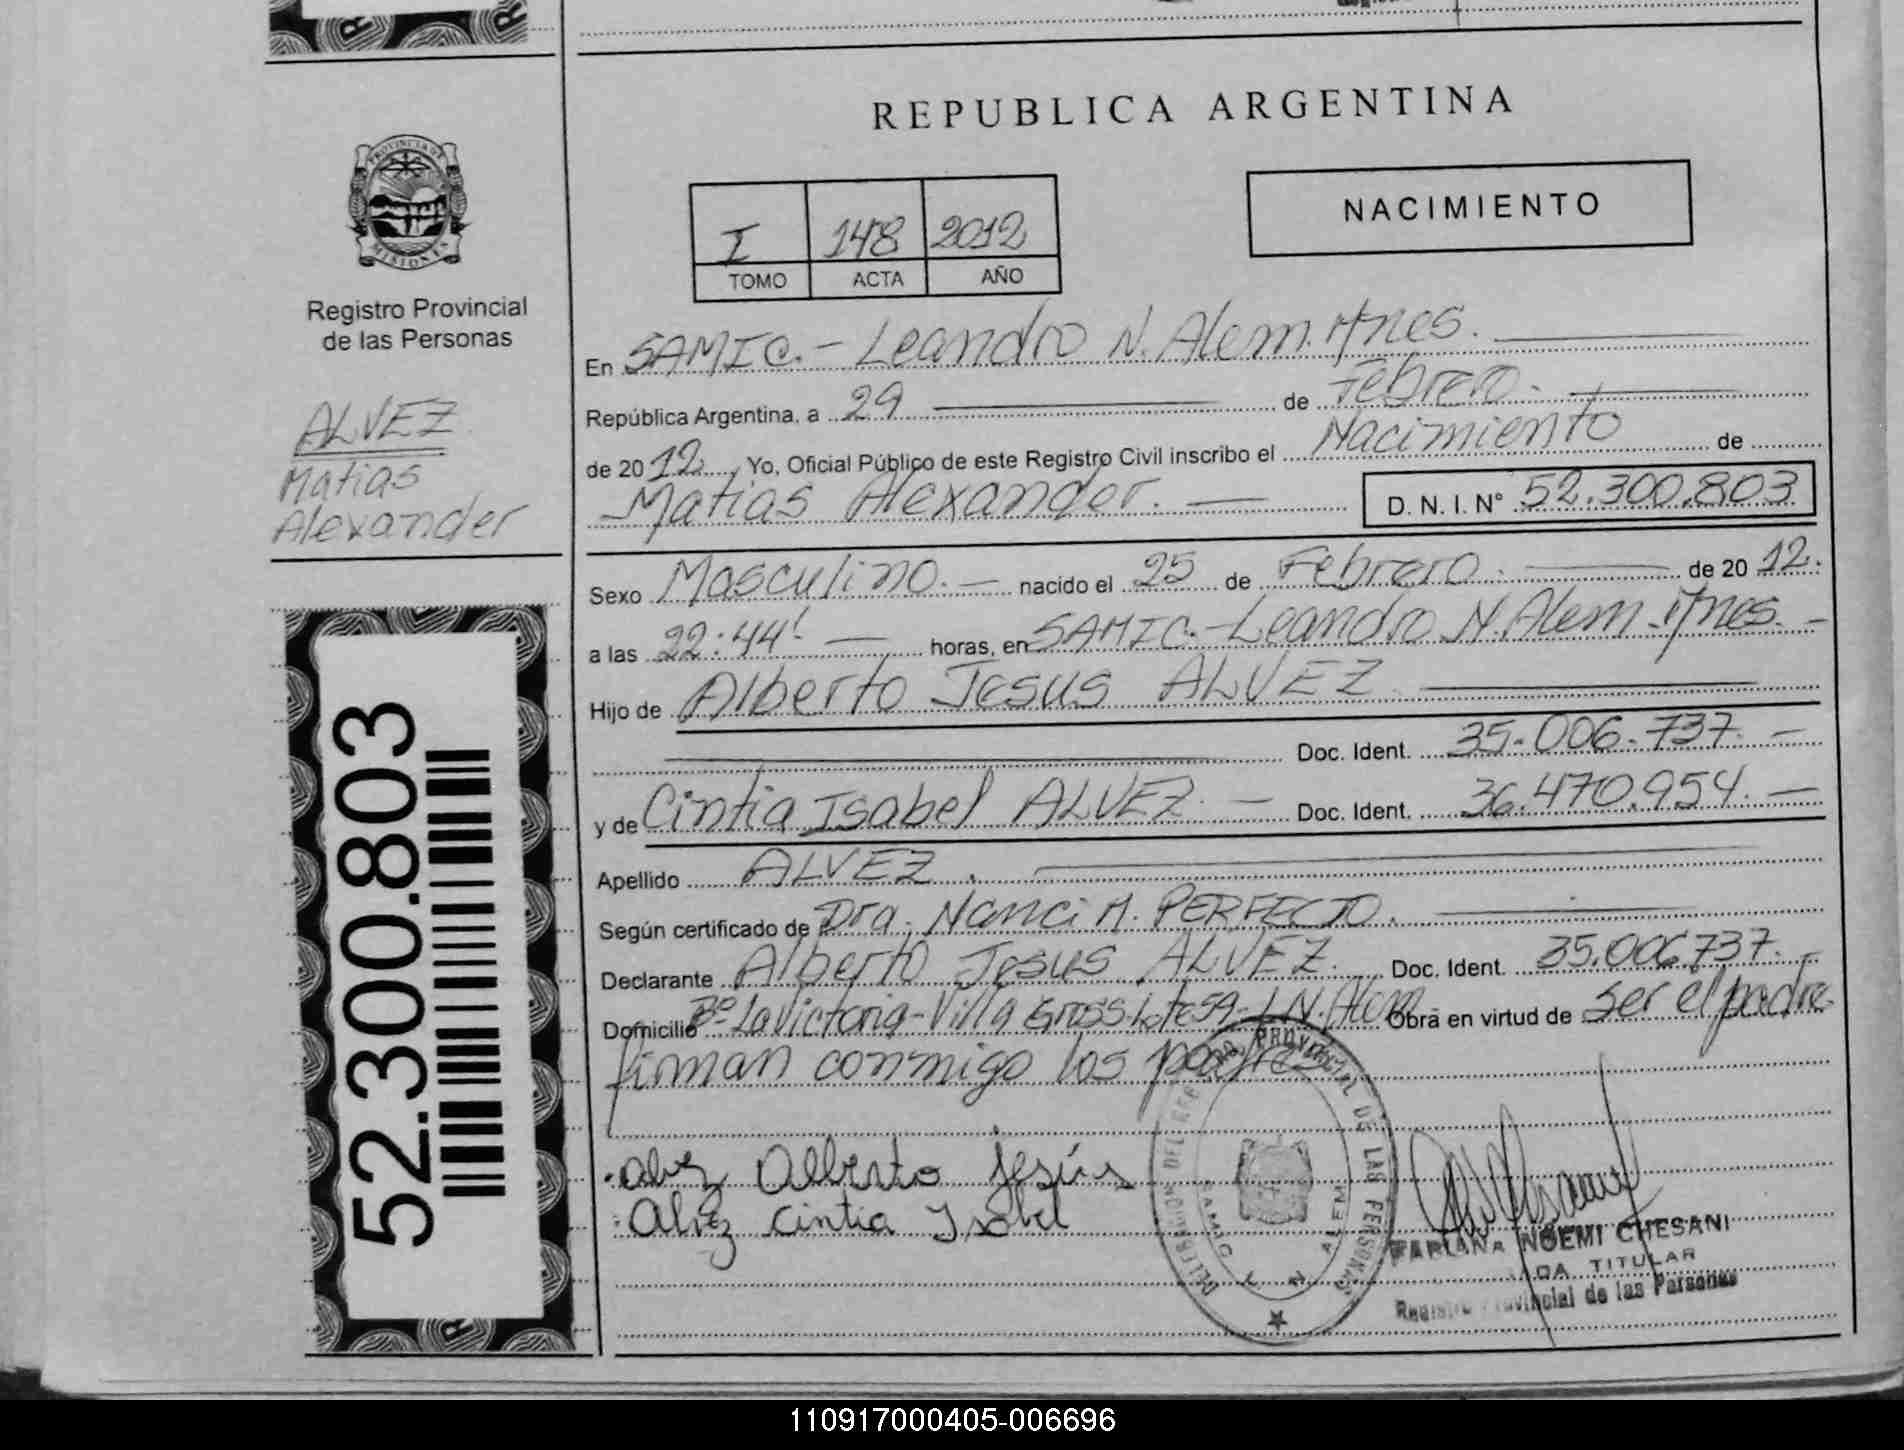 REPUBLICA ARGENTINA
PROVINCIA DE
MISIONES
Registro Provincial
de las Personas
ALVEZ
Matias
Alexander
52.300.803
NACIMIENTO
I 148 2012
TOMO ACTA AÑO
En SAMIC.- Leandro N. Alem. Mnes.
República Argentina, a 29 de Febrero.
de 2012, Yo, Oficial Público de este Registro Civil inscribo el Nacimiento de
Matias Alexander. D. N. I. N° 52.300.803
Sexo Masculino.- nacido el 25 de Febrero. de 2012.
a las 22:44' horas, en SAMIC.- Leandro N. Alem. Mnes.-
Hijo de Alberto Jesus ALVEZ.
Doc. Ident. 35.006.737.-
y de Cintia Isabel ALVEZ.- Doc. Ident. 36.470.954.-
Apellido ALVEZ.
Según certificado de Dra. Nanci A. PERFECTO.
Declarante Alberto Jesus ALVEZ. Doc. Ident. 35.006.737.-
Domicilio B° La Victoria-Villa Lote 59-L.N. Alem Obra en virtud de ser el padre
firman conmigo los padres
Alvez Alberto Jesús
Alvez Cintia Ysabel
DELEGACION DEL REGISTRO PROVINCIAL DE LAS PERSONAS
SAMIC L N ALEM
NOEMI CHESANI
TITULAR
Registro Provincial de las Personas
110917000405-006696